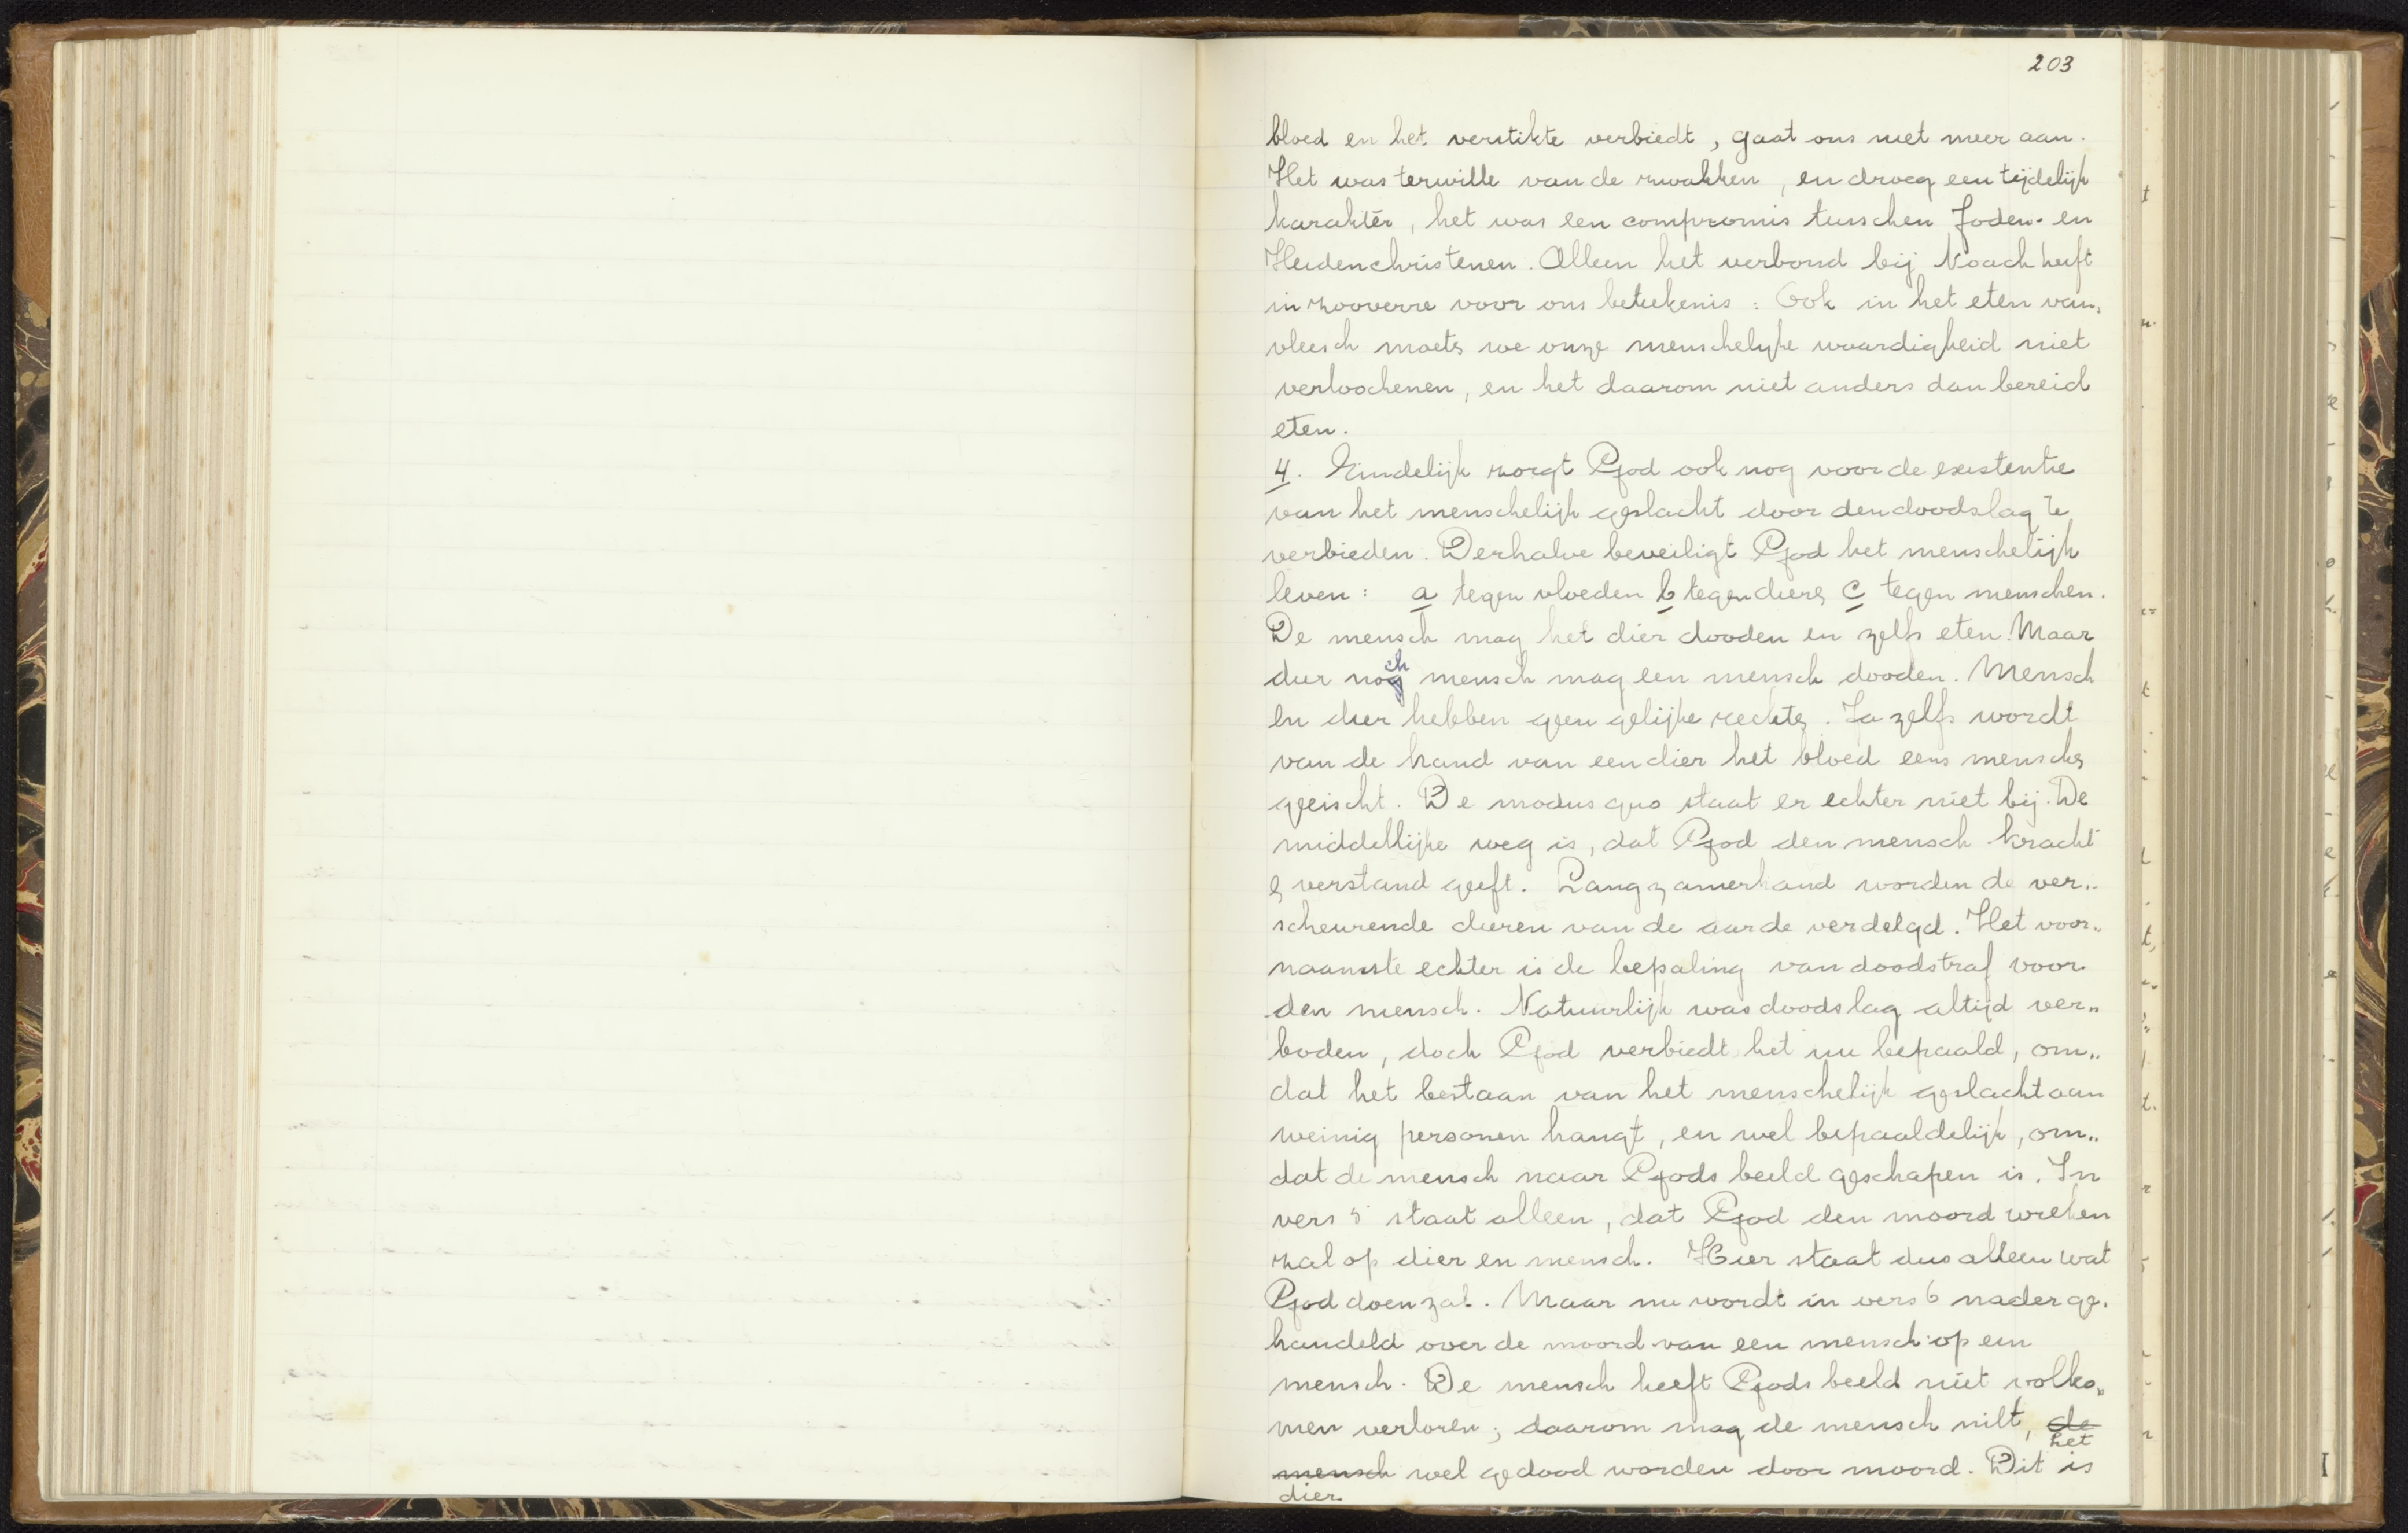 203
bloed en het verstikte verbiedt, gaat ons niet meer aan.
Het was terwille van de zwakken, en droeg een tijdelijk
karakter, het was een compromis tusschen Joden- en
Heidenchristenen. Alleen het verbond bij Noach heeft
in zooverre voor ons beteekenis: Ook in het eten van
vleesch moeten we onze menschelijke waardigheid niet
verloochenen, en het daarom niet anders dan bereid
eten.
4. Eindelijk zorgt God ook nog voor de existentie
van het menschelijk geslacht door den doodslag te
verbieden. Derhalve beveiligt God het menschelijk
leven: a tegen vloeden b tegen dieren c tegen menschen.
De mensch mag het dier dooden en zelfs eten. Maar
dier noch mensch mag een mensch dooden. Mensch
en dier hebben geen gelijke rechten. Ja zelfs wordt
van de hand van een dier het bloed eens menschen
geischt. De modus quo staat er echter niet bij. De
middellijke weg is, dat God den mensch kracht
en verstand geeft. Langzamerhand worden de ver„
scheurende dieren van de aarde verdelgd. Het voor„
naamste echter is de bepaling van doodstraf voor
den mensch. Natuurlijk was doodslag altijd ver„
boden, doch God verbiedt het nu bepaald, om„
dat het bestaan van het menschelijk geslacht aan
weinig personen hangt, en wel bepaaldelijk, om„
dat de mensch naar Gods beeld geschapen is. In
vers 5 staat alleen, dat God den moord wreken
zal op dier en mensch. Hier staat dus alleen wat
God doen zal. Maar nu wordt in vers 6 nader ge„
handeld over de moord van een mensch op een
mensch. De mensch heeft Gods beeld niet volko„
men verloren; daarom mag de mensch niet, de
het
mensch wel gedood worden door moord. Dit is
dier